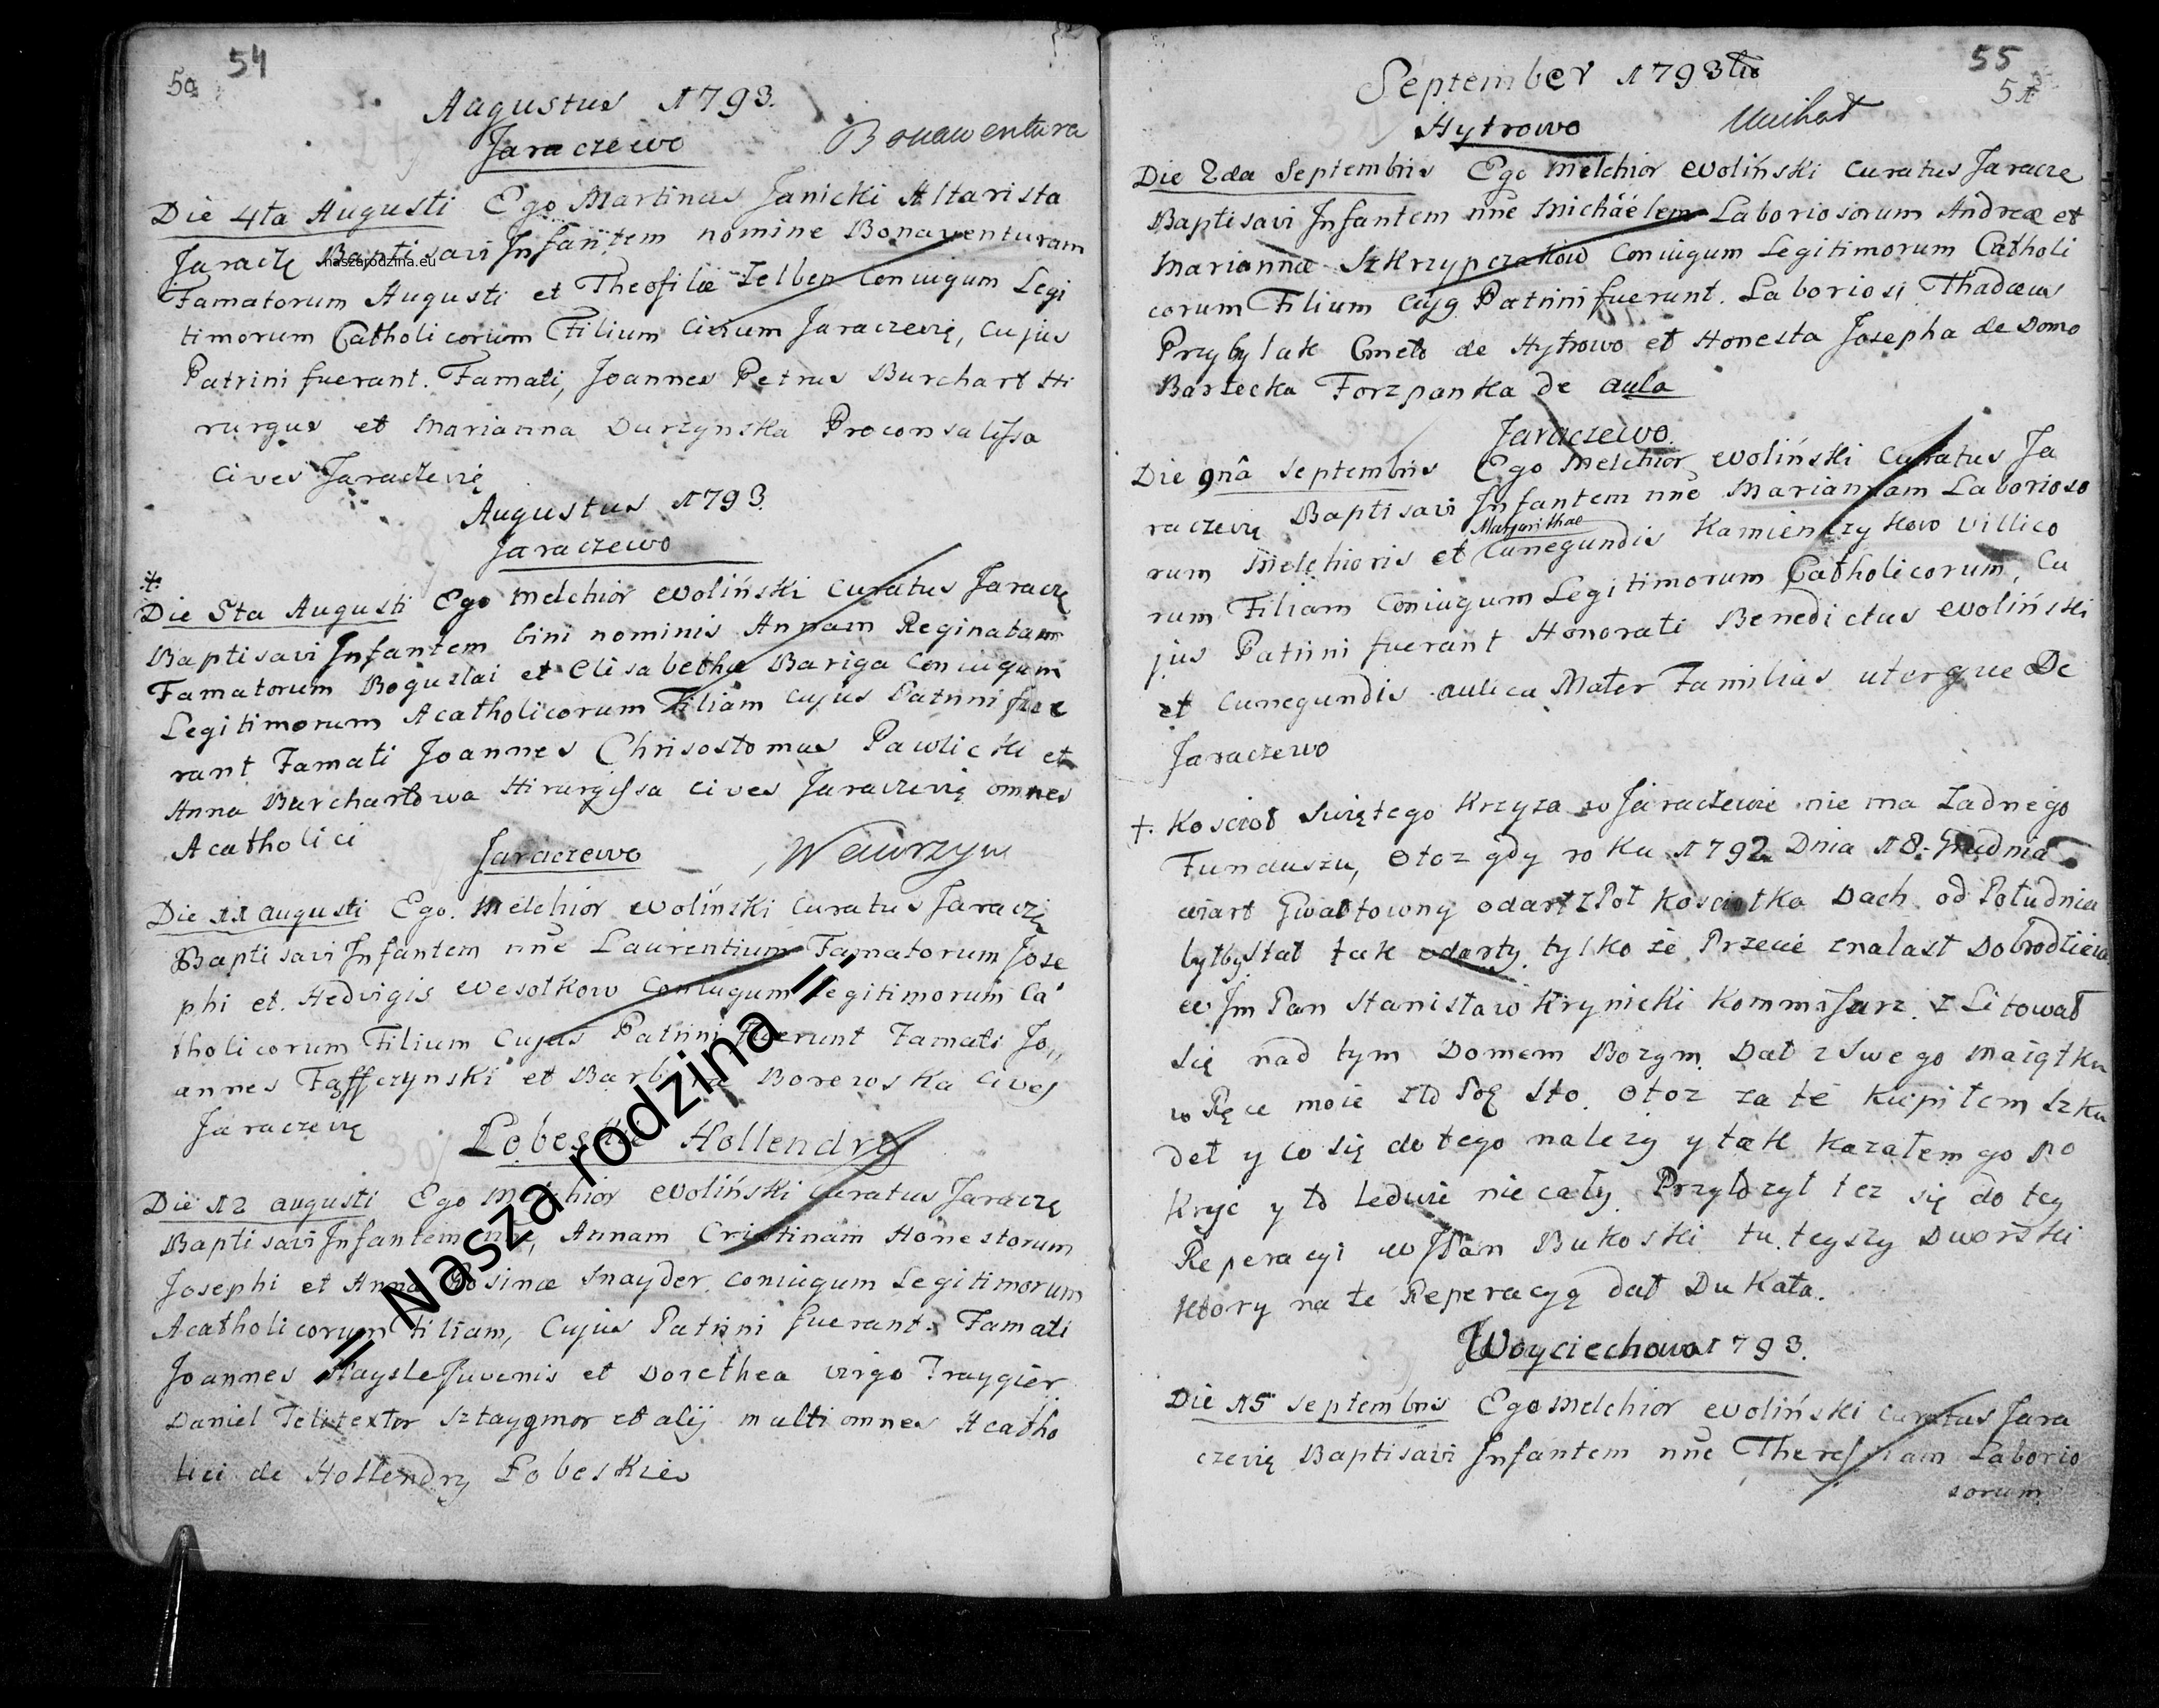 54
50
Augustus 1793.
Jaraczewo
Bonawentura
Die 4ta Augusti Ego Martinus Janicki Altarista
Jaraczę Baptisavi Infantem nomine Bonaventuram
Famatorum Augusti et Theofilæ Zelber Coniugum Legi
timorum Catholicorum Filium Civium Jaraczevię, Cujus
Patrini fuerant. Famati, Joannes Petrus Burchart Hi
rurgus et Marianna Durzynska Proconsulissa
Cives Jaraczevię
Augustus 1793.
Jaraczewo
Die 5ta Augusti Ego Melchior Woliński Curatus Jaraczę
Baptisavi Infantem bini nominis Annam Reginatam
Famatorum Boguzlai et Elisabethæ Bariga Coniugum
Legitimorum Acatholicorum Filiam Cujus Patrini fue
rant Famati Joannes Chrisostomus Pawlicki et
Anna Burchartowa Hirurgissa Cives Jaraczevię omnes
Acatholici
Jaraczewo
Wawrzyn
Die 11 augusti Ego. Melchior Woliński Curatus Jaraczę
Baptisavi Infantem nne Laurentium Famatorum Jose
phi et. Hedvigis Wesołkow Coniugum Legitimorum Ca
tholicorum Filium Cujus Patrini fuerunt Famati Jo,,
annes et Barbara Borewska Cives
Jaraczevię
Łobeskie Hollendry
Die 12 augusti Ego Melchior Woliński Curatus Jaraczę
Baptisavi Infantem nne, Annam Cristinam Honestorum
Josephi et Anna Rosinæ Snayder Coniugum Legitimorum
Acatholicorum Filiam, Cujus Patrini fuerant. Famati
Joannes Juvenis et Dorethea virgo Fraygier
Daniel Telitextor Sztaygmor et alij multi omnes Acatho
lici de Hollendry Łobeskie
naszarodzina.eu
= Nasza rodzina =
55
51
September 1793tio
Hytrowo
Michał
Die 2da Septembris Ego Melchior Woliński Curatus Jaraczę
Baptisavi Infantem nne Michäélem Laboriosorum Andreæ et
Mariannæ Szkrzypczakow Coniugum Legitimorum Catholi
corum Filium Cujg Patrini fuerunt. Laboriosi Thadæus
Przybylak Cmeto de Hytrowo et Honesta Josepha de Domo
Bartecka Forzpanka de aula
Jaraczewo.
Die 9nâ Septembris Ego Melchior Woliński Curatus Ja
raczevię Baptisavi Infantem nne Mariannam Laborioso
Margarithae
rum Melchioris et Cunegundis Kamieńczykow villico
rum Filiam Coniugum Legitimorum Catholicorum, Cu
jus Patrini fuerant Honorati Benedictus Woliński
et Cunegundis aulica Mater Familias uterque De
Jaraczewo
†. Koscioł Swiętego Krzyza w Jaraczewie nie ma zadnego
Funduszu, Otoz gdy roku 1792 Dnia 18. Grudnia
wiart Gwałtowny odart z Poł Kosciołka Dach od Południa
byłby stał tak odarty, tylko ze Przecie znalast Dobrodzieia
W Jm Pan Stanisław Krynicki Kommissarz. z Litował
się nad tym Domem Bozym. Dał z Swego Maiątku
w Ręce moie zło Pol. Sto. Otoz za te kupiłem Szku
deł y co się do tego nalezy y tak kazałem go po
kryć y to ledwie nie cały. Przyłozył tez się do tey
Reperacyi W JPan Bukoski tuteyszy Dworski
ktory na te Reperacyą dał Dukata.
Woyciechowo 1793.
Die 15 Septembris Ego Melchior Woliński Curatus Jara
czevię Baptisavi Infantem nne Theressiam Laborio
sorum